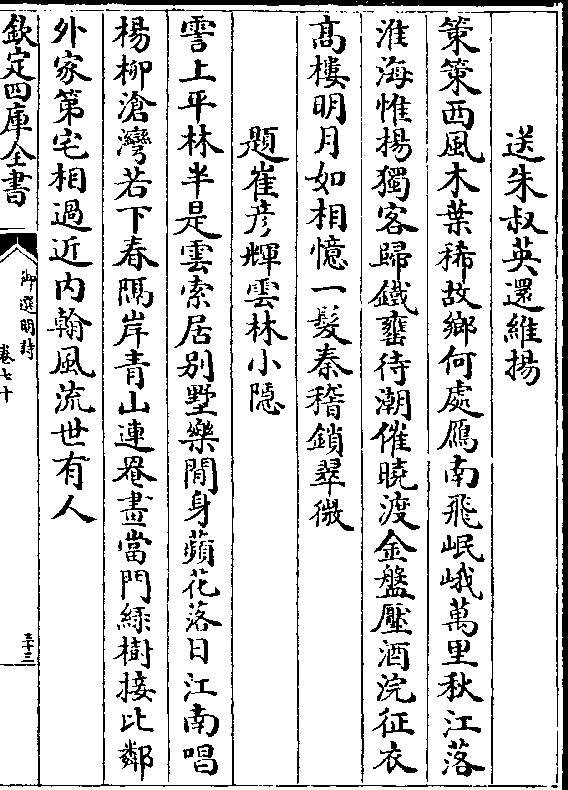 送朱叔英還維揚
策策西風木葉稀故鄉何處鴈南飛岷峨萬里秋江落
淮海惟揚獨客歸鐵甕待潮催曉渡金盤壓酒浣征衣
髙樓明月如相憶一髮秦稽鎖翠微
題崔彦輝雲林小隠
霅上平林半是雲索居别墅樂閒身蘋花落日江南唱
楊柳滄灣若下春隔岸青山連罨畫當門緑樹接比鄰
外家第宅相過近内翰風流世有人
欽定四庫全書
御選明詩
卷七十
三十三